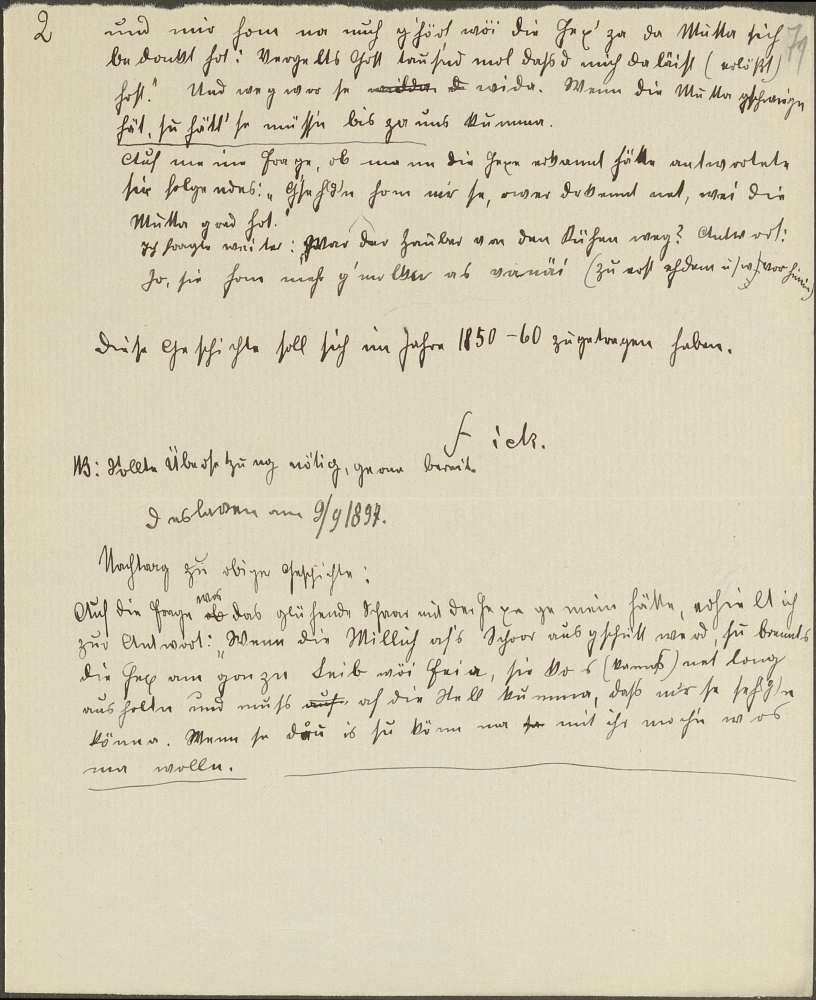 2
79
und mir hom na nuch g'hört wöi die Hex' za da Mutta sich
bedankt hot: „Vergelts Gott tausend mol daß d mich daläist (erlößt)
host." Und weg wor se wida. Wenn die Mutta gschwiegn
hät, su hätt' se müssn bis za uns kumma.
Auf meine Frage, ob man die Hexe erkannt hätte antwortete
sie folgendes: „G'seh'gn hom mir se, ower derkennt net, wei die
Mutta gred hot."
Ich fragte weiter: War der Zauber von den Kühen weg? Antwort:
Jo, sie hom mehr g'molken as vanäi (zuerst ehdem u/w) vorhinein)
Diese Geschichte soll sich im Jahre 1850–60 zugetragen haben.
Fick.
NB: Sollte Übersetzung nötig, gerne bereit.
Deslawen am 9/9 1897.
Nachtrag zu obiger Geschichte:
Auf die Frage was das glühende Schaar mit der Hexe gemein hätte, erhielt ich
zur Antwort: „Wenn die Millich af's Schoor ausgschütt werd, su brennts
die Hex am gonzn Leib wöi Feia, sie ko's (kann's) net long
ausholtn und muß af die Stell kumma, daß mir se seh'gn
könna. Wenn se dåu is su könn ma mit ihr mochn wos
ma wolln.